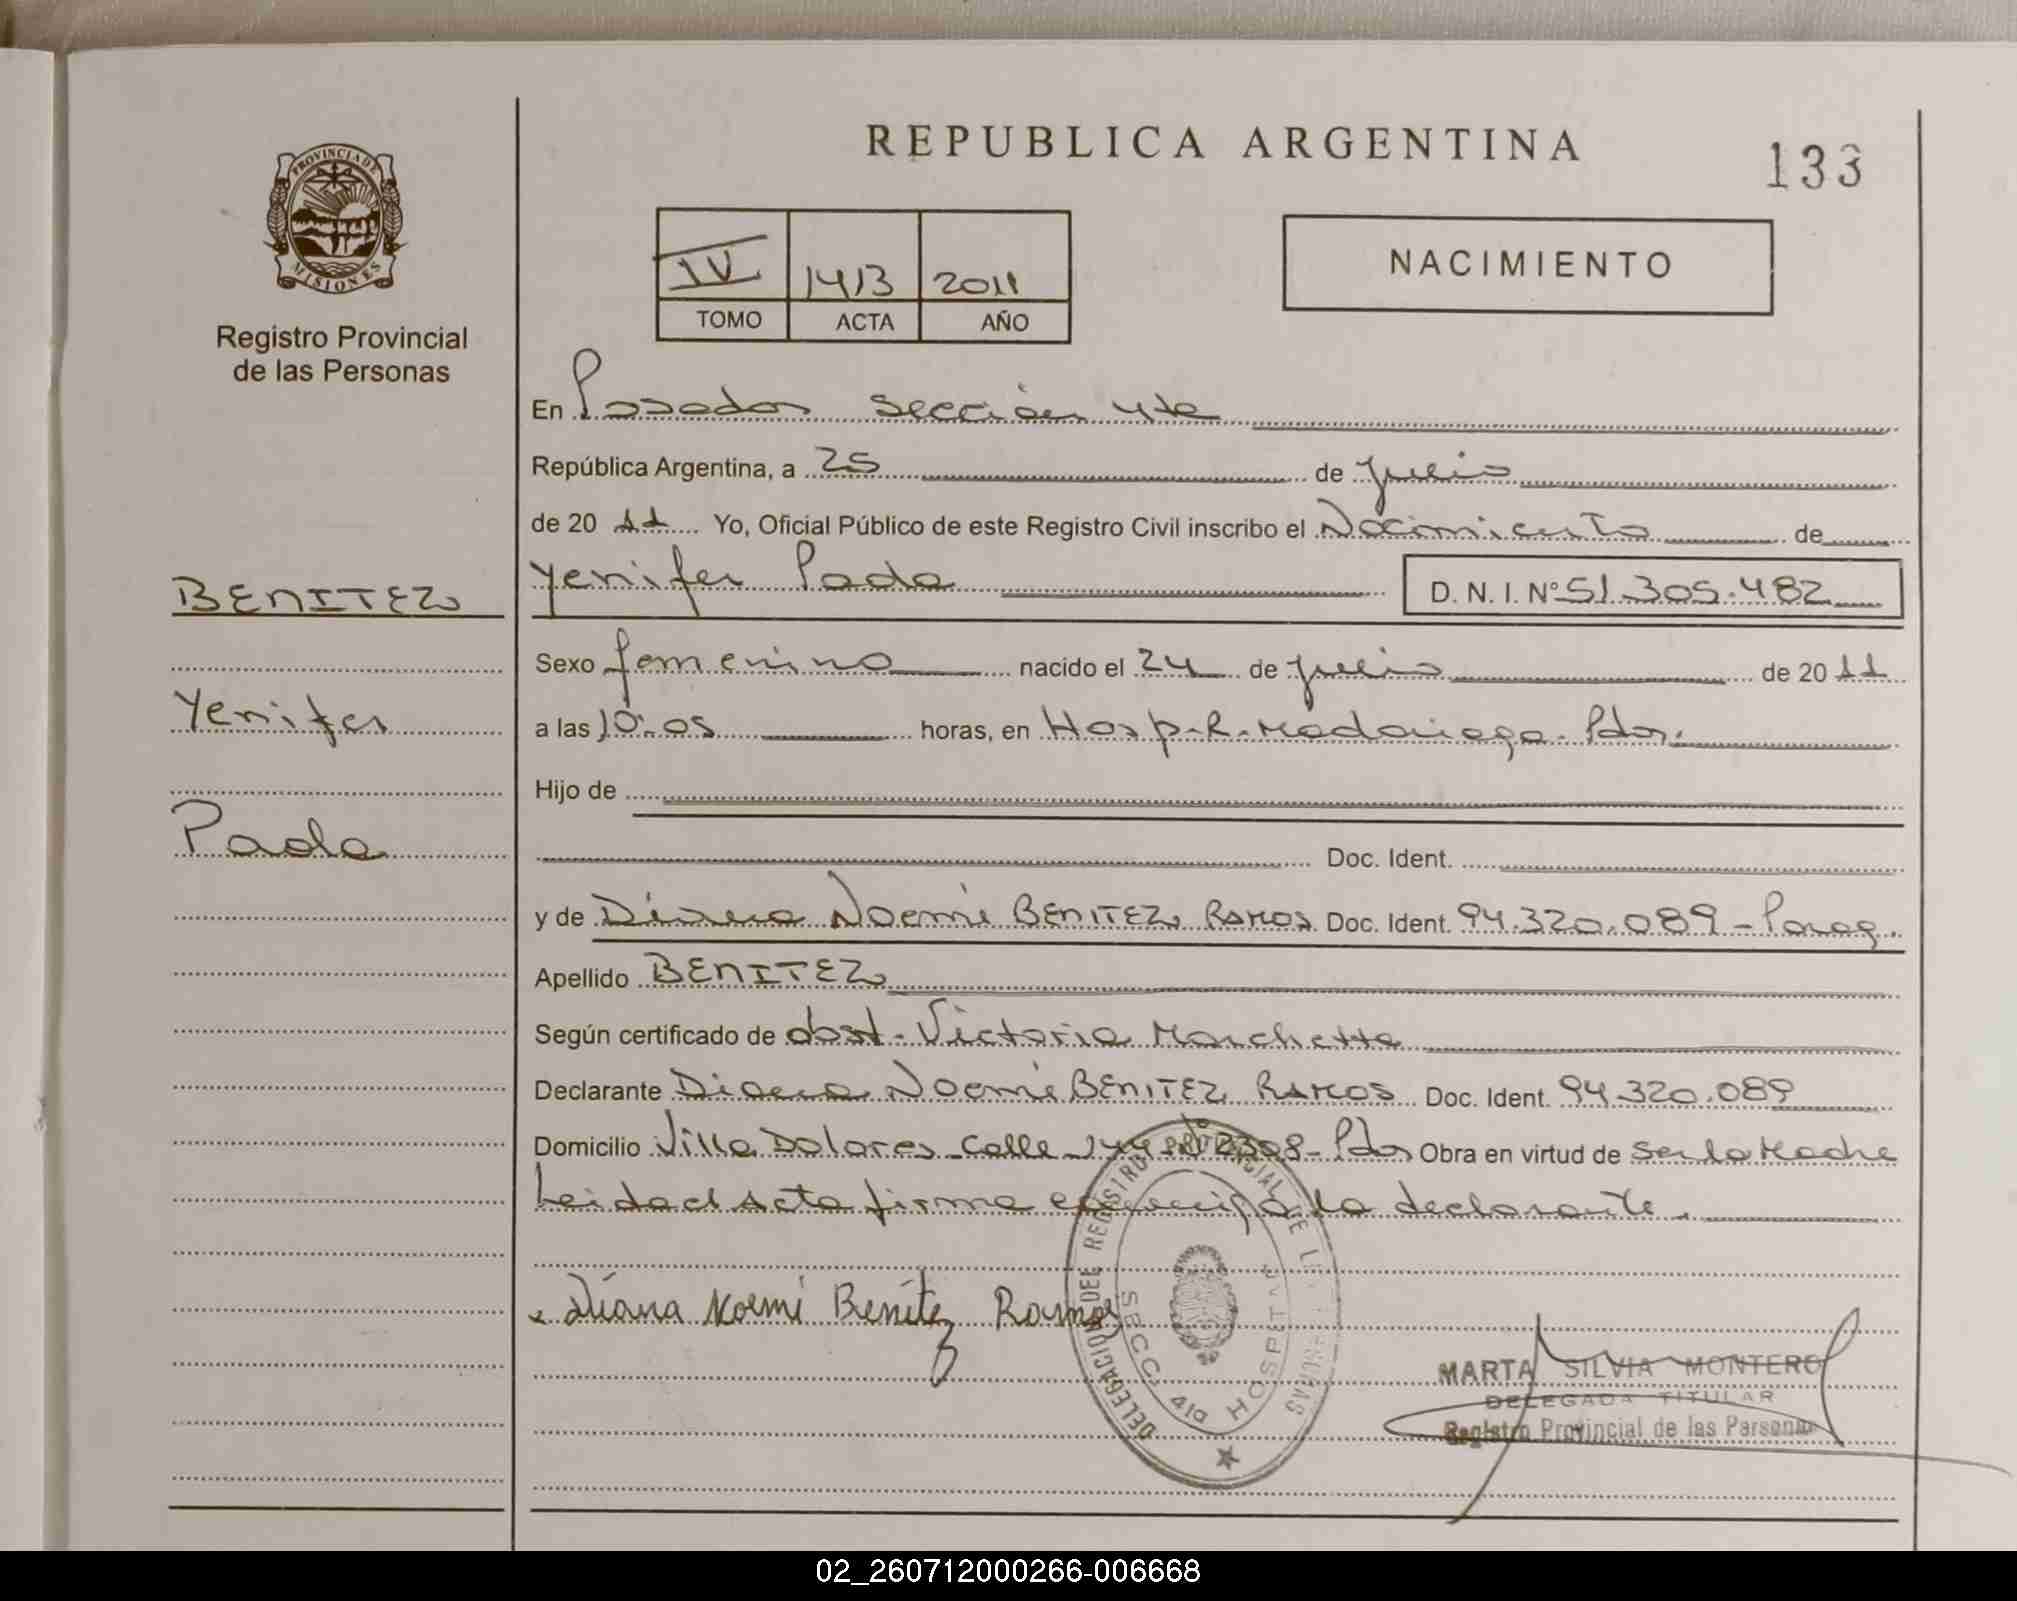 REPUBLICA ARGENTINA
133
PROVINCIA DE
MISIONES
Registro Provincial
de las Personas
IV 1413 2011
TOMO ACTA AÑO
NACIMIENTO
En Posadas Sección 4ta
República Argentina, a 25 de julio
de 20 11 Yo, Oficial Público de este Registro Civil inscribo el Nacimiento de
BENITEZ
Yenifer Paola D. N. I. Nº 51.305.482
Sexo femenino nacido el 24 de julio de 20 11
Yenifer
a las 10:05 horas, en Hosp. R. Madariaga. Pdas.
Hijo de
Paola
Doc. Ident.
y de Diana Noemi BENITEZ RAMOS Doc. Ident. 94.320.089 - Parag.
Apellido BENITEZ
Según certificado de obst. Victoria Marchetta
Declarante Diana Noemi BENITEZ RAMOS Doc. Ident. 94.320.089
Domicilio Villa Dolores Calle 144 Nº 2308 - Pdas Obra en virtud de Ser la Madre
Leida el Acta firma conmigo la declarante.
Diana Noemi Benítez Ramos
DELEGACION DEL REGISTRO PROVINCIAL DE LAS PERSONAS
SECC. 4ta HOSPITAL
MARTA SILVIA MONTERO
DELEGADA TITULAR
Registro Provincial de las Personas
02_260712000266-006668